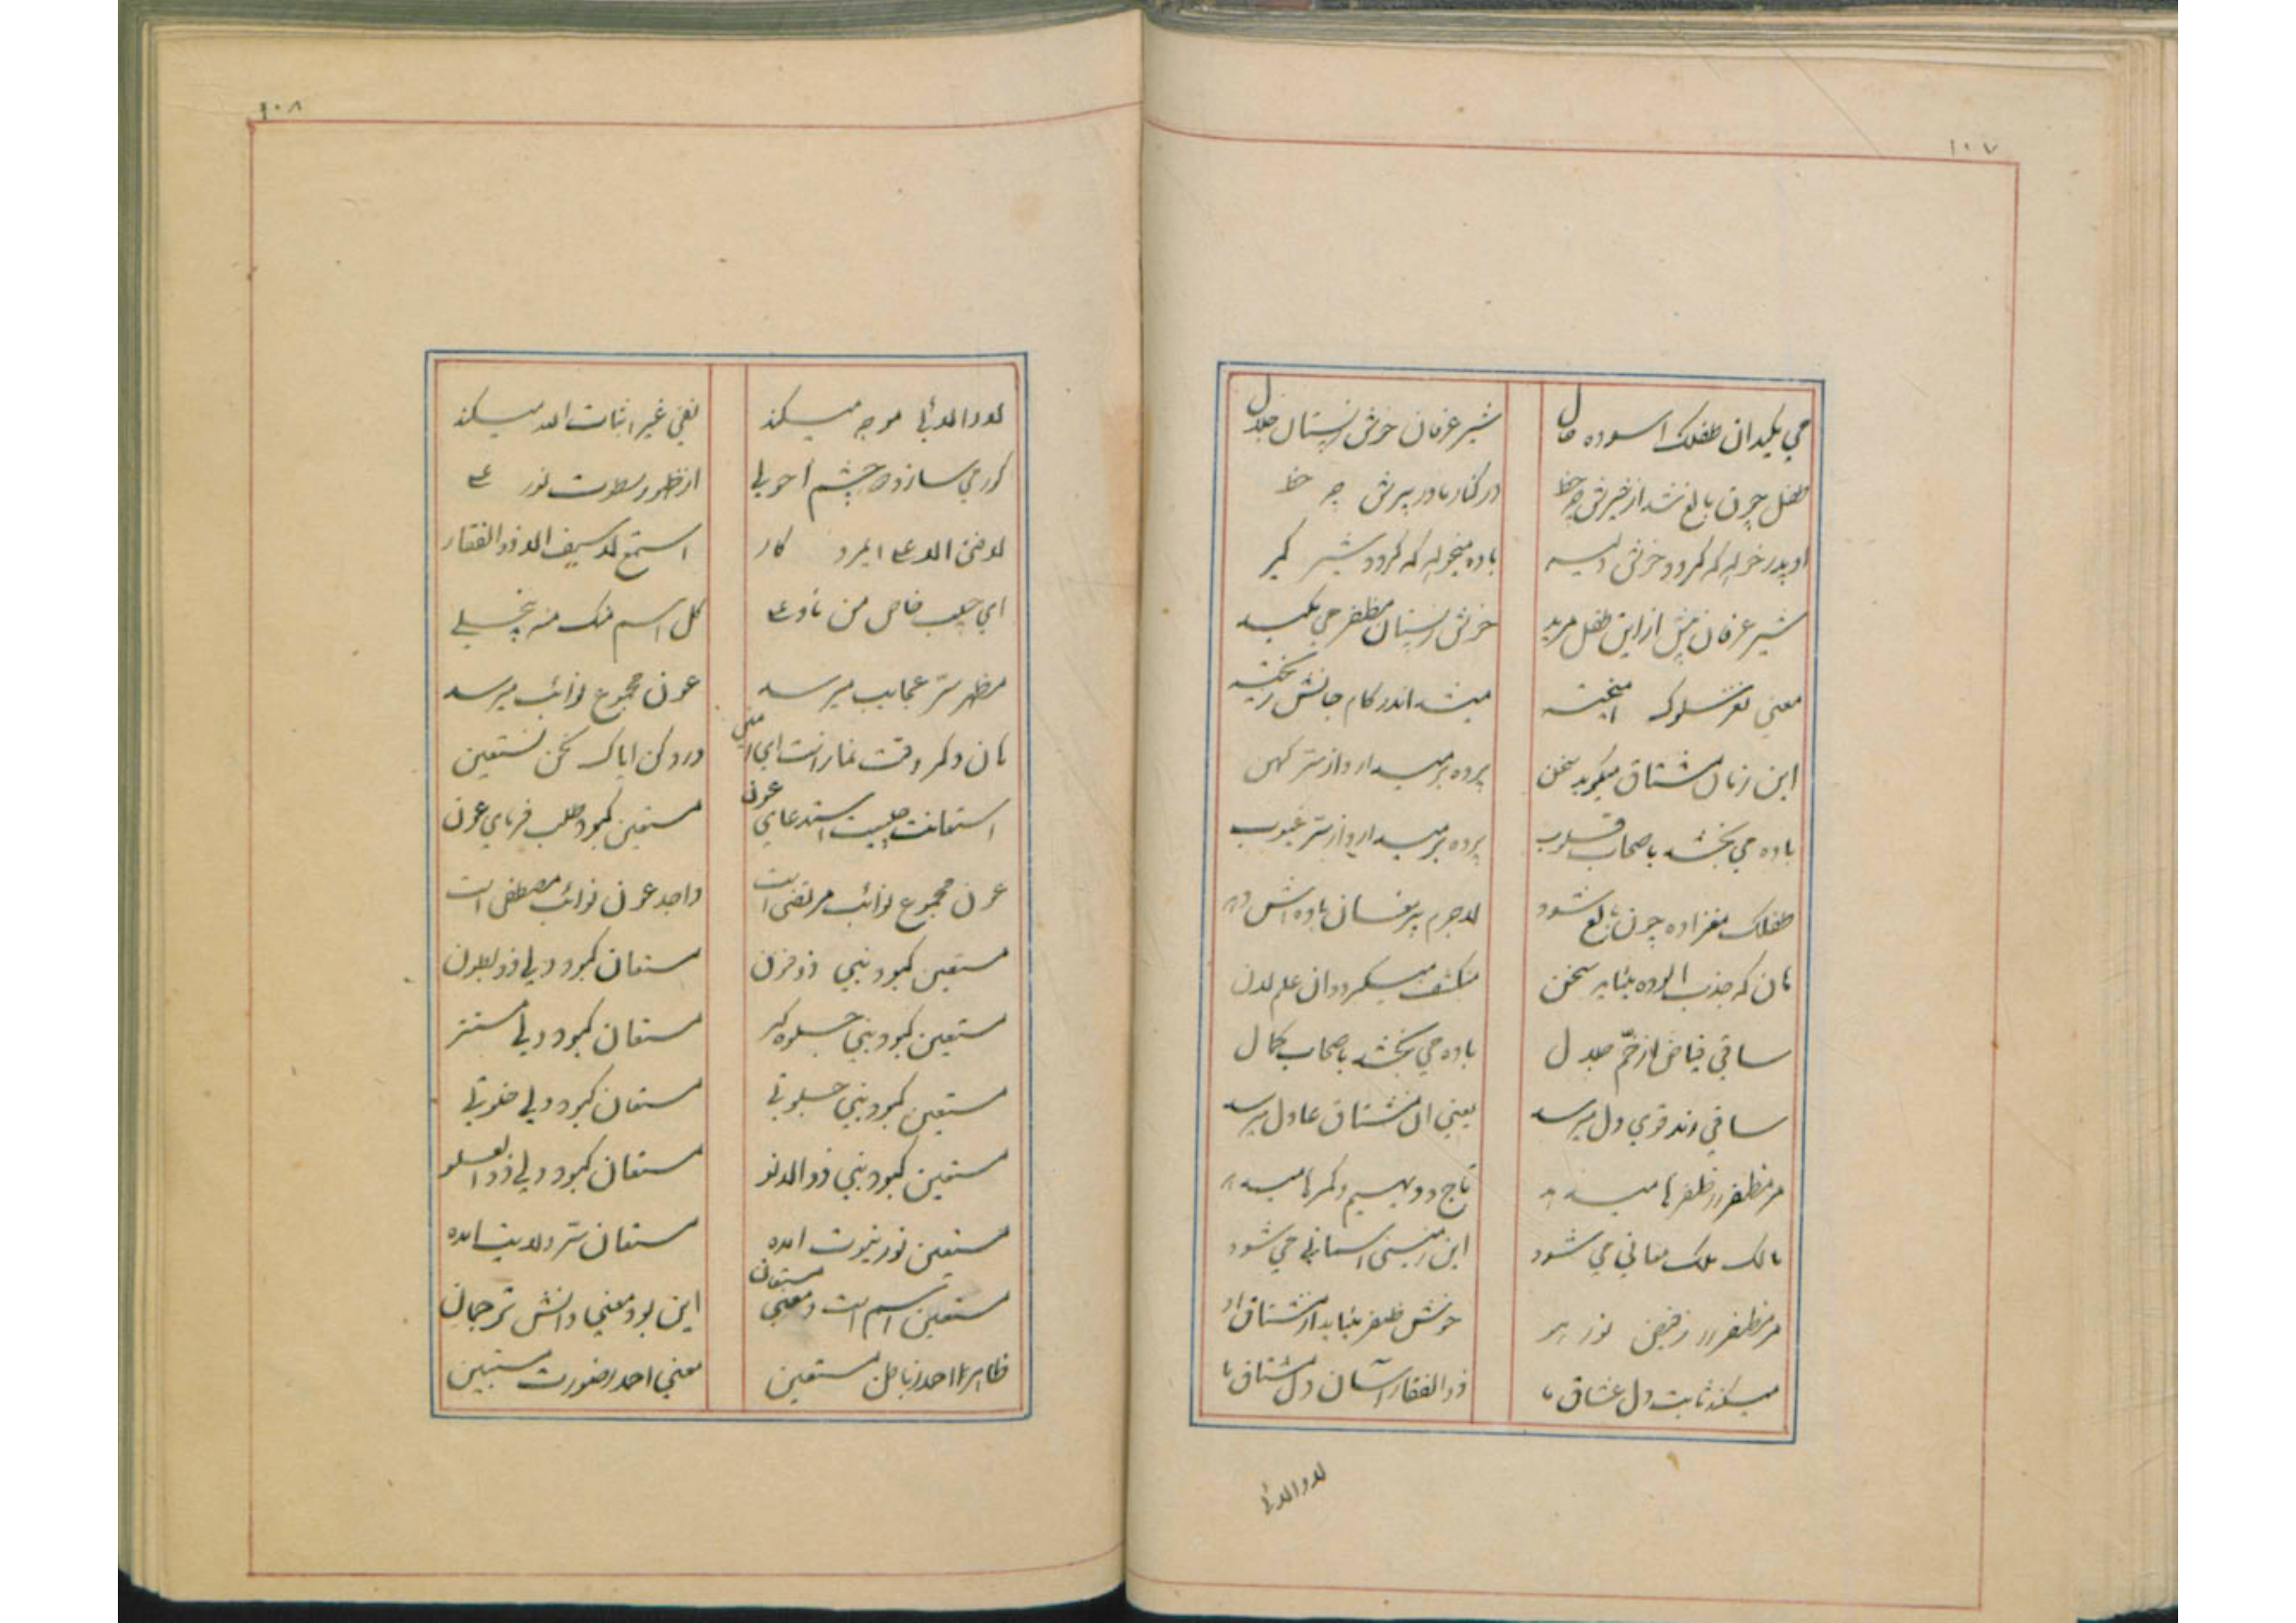 ١٠٧
می مکید آن طفلک آسوده حال
شیر عرفان خوش ز پستان جلال
طفل چون بالغ شد از شیرش چه حظ
در کنار مادر پیرش چه حظ
او پدر خواهد که گردد خوش دلیر
باده میخواهد که گردد شیر گیر
شیر عرفان پیش از این طفل مرید
خوش ز پستان مظفر می مکید
معنی نغز سلوک
میشد اندر کام جانش ریخته
این زمان مشتاق میگوید سخن
پرده برمیدارد از ستر کهن
باده می بخشد باصحاب قلوب
پرده برمیدارد از ستر غیوب
طفلک مغزاده چون بالغ شود
لاجرم پیر مغان باده اش دهد
هان که جذب الوده بنماید سخن
منکشف میگردد آن علم لدن
ساقی فیاض از خم جلال
باده می بخشد باصحاب کمال
ساقی رند قوی دل میرسد
یعنی آن مشتاق عادل میرسد
مر مظفر را ظفرها میدهد
تاج و دیهیم و کمرها میدهد
مالک ملک معانی می شود
این زمینی آسمانی می شود
مر مظفر را ز فیض نور هو
خوش ظفر بنماید از مشتاق او
میکند ثابت دل عشاق ما
ذوالفقار آسمان دل مشتاق ما
لا و الا را
١٠٨
لا و الا را موجه میکند
نفی غیر اثبات الله میکند
کور می سازد دو چشم احولی
از ظهور سطوت نور علی
لا فتی الا علی ایمرد کار
استمع لا سیف الا ذوالفقار
ای حبیب خاص من ناد علی
کل اسم منک منه ینجلی
مظهر سر عجایب میرسد
عون مجموع نوائب میرسد
هان و کمر وقت نماز است ای امین
ورد کن ایاک نحن نستعین
استعانت چیست استدعای عون
مستعین کبود طلب فرمای عون
عون مجموع نوائب مرتضی است
واجد عون نوائب مصطفی است
مستعین کبود نبی ذو فنون
مستعان کبود ولی ذو بطون
مستعین کبود نبی جلوه گر
مستعان کبود ولی مستتر
مستعین کبود نبی جلوتی
مستعان کبود ولی خلوتی
مستعین کبود نبی ذو الدنو
مستعان کبود ولی ذو العلو
مستعین نور نبوت آمده
مستعان سر ولایت آمده
مستعین اسم است و معنی مستعان
این بود معنی دانش ترجمان
ظاهر احمد ز باطن مستعین
معنی احمد ز صورت مستبین